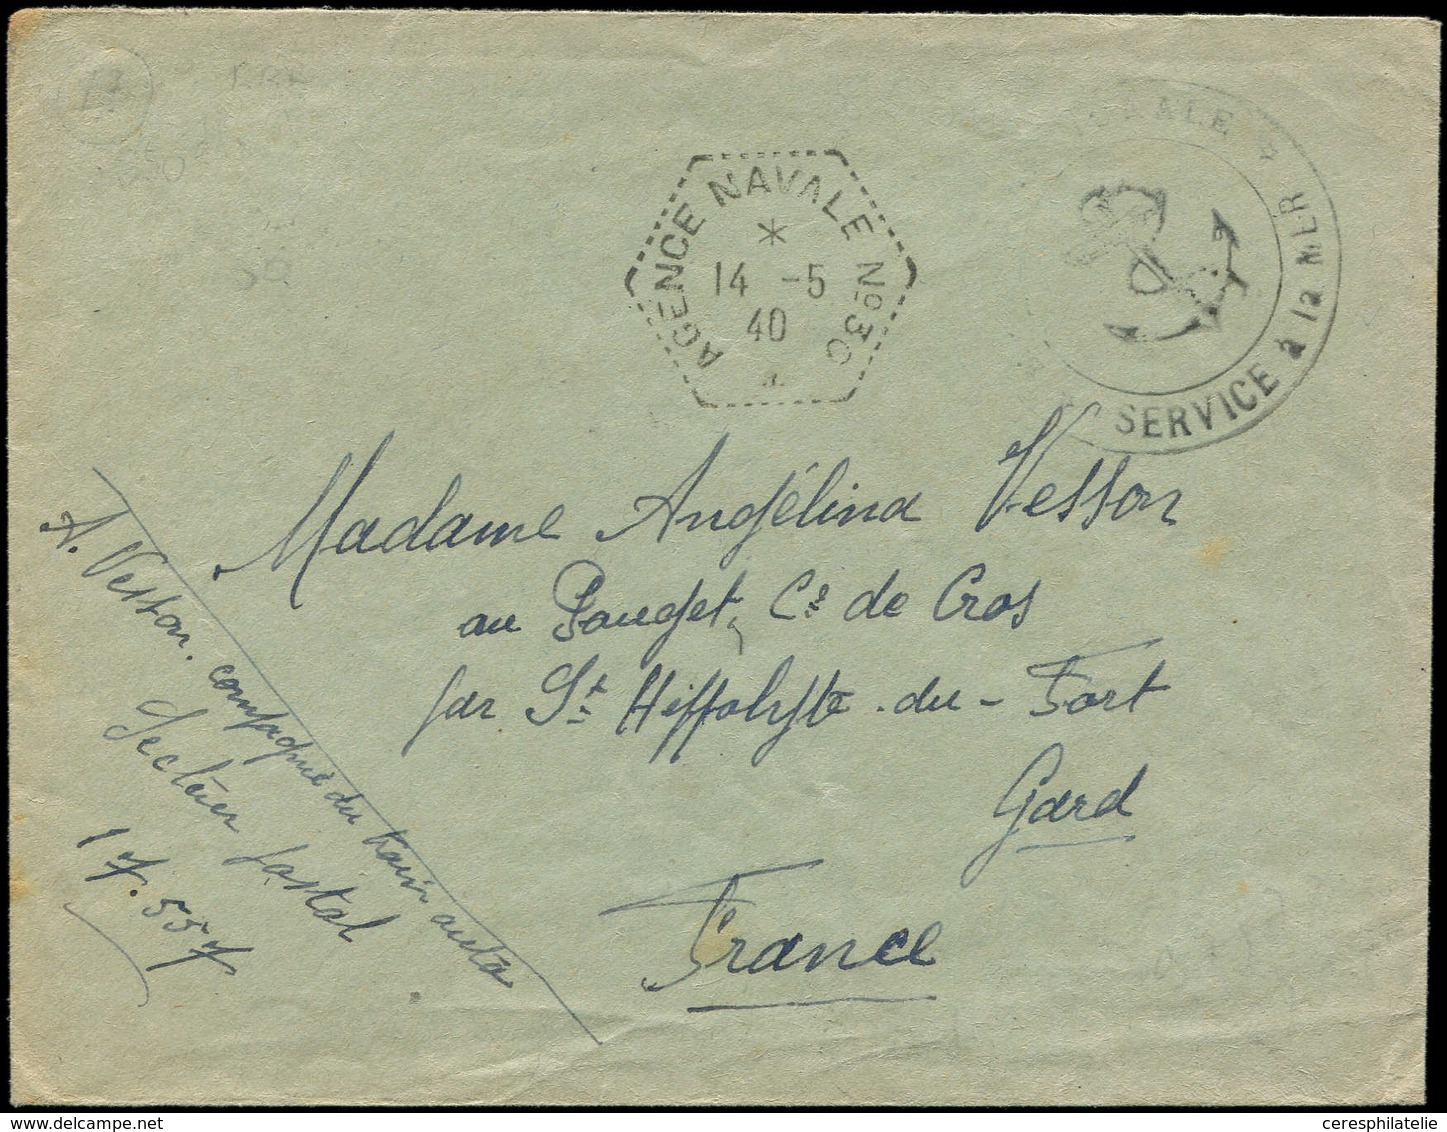 AGENCE NAVALE Nº30
*
14 -5
40
SERVICE à la MER
Madame Angélina Vesson
au Pouget, Cⁿᵉ de Cros
par Sᵗ Hippolyte-du-Fort
Gard
France
A. Vesson. compagnie du train auto
Secteur postal
17.557
17
ceresphilatelie